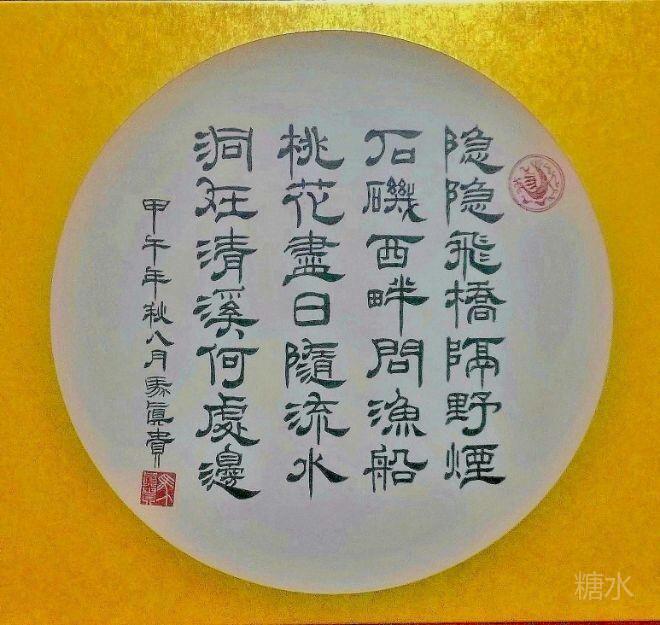 隐隐飛橋隔野煙
石磯西畔問漁船
桃花盡日隨流水
洞在清溪何處邊
甲午年秋八月馬真貴
糖水